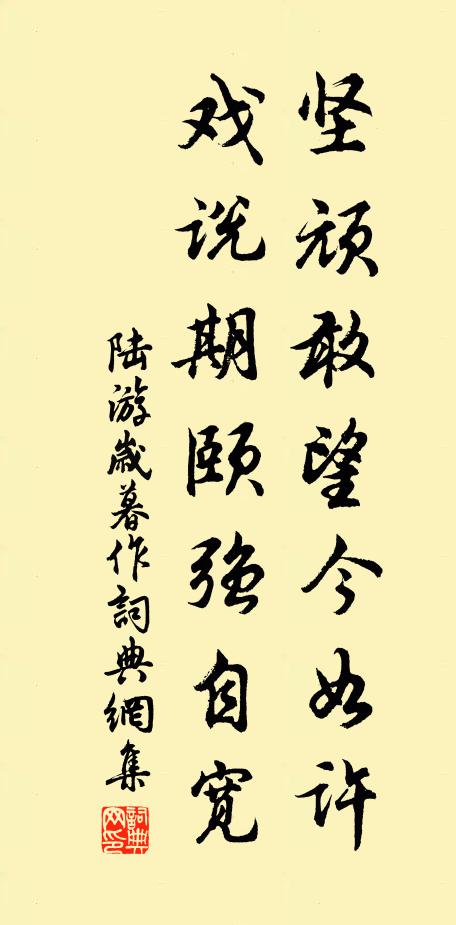 坚顽敢望今如许
戏说期颐强自宽
陆游歲暮作詞典網集
詞典网印